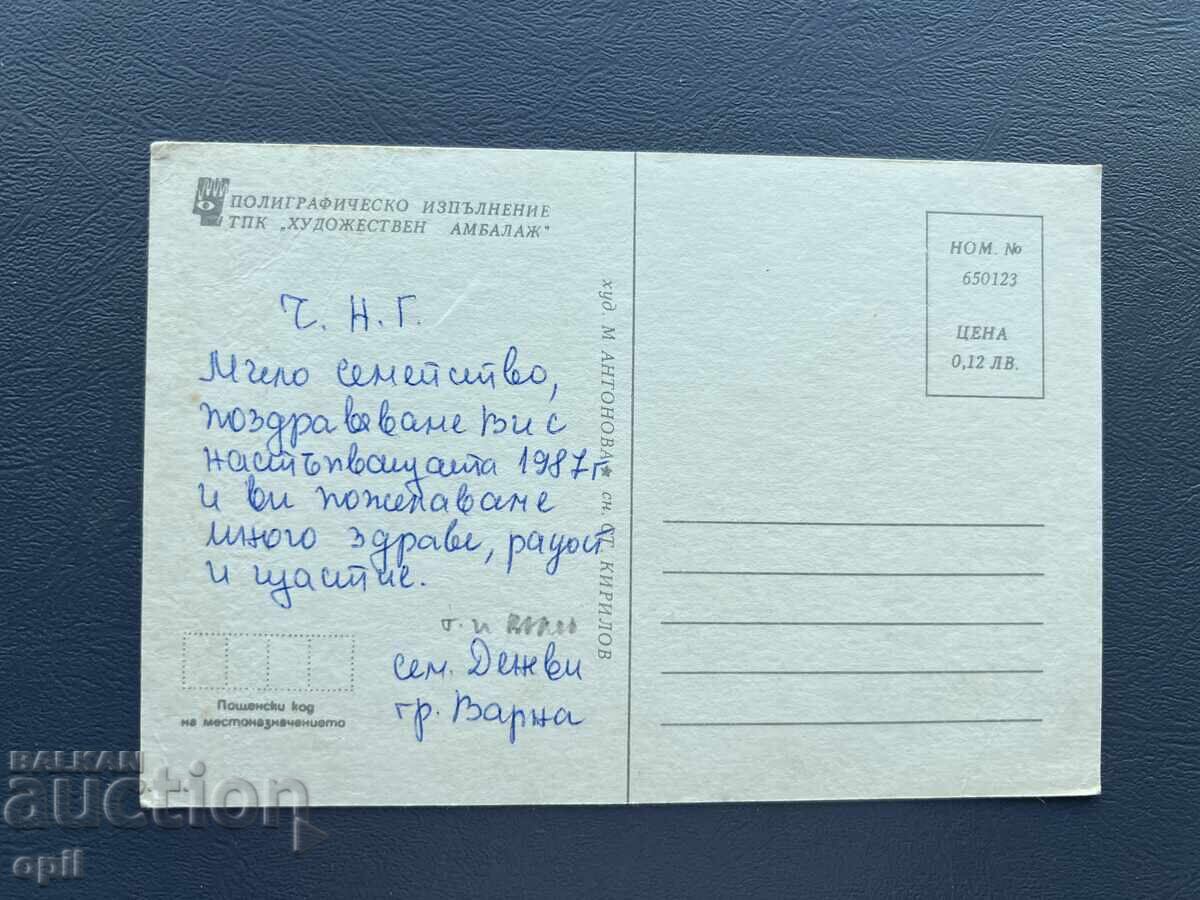 ПОЛИГРАФИЧЕСКО ИЗПЪЛНЕНИЕ
ТПК „ХУДОЖЕСТВЕН АМБАЛАЖ"
Ч. Н. Г.
Мило семейство,
поздравяваме Ви с
настъпващата 1987 г
и ви пожелаваме
много здраве, радост
и щастие.
т. и
сем. Дежви
гр. Варна
Пощенски код
на местоназначението
худ. М АНТОНОВА * сн. СТ. КИРИЛОВ
НОМ. №
650123
ЦЕНА
0,12 ЛВ.
BALKAN
auction
opil